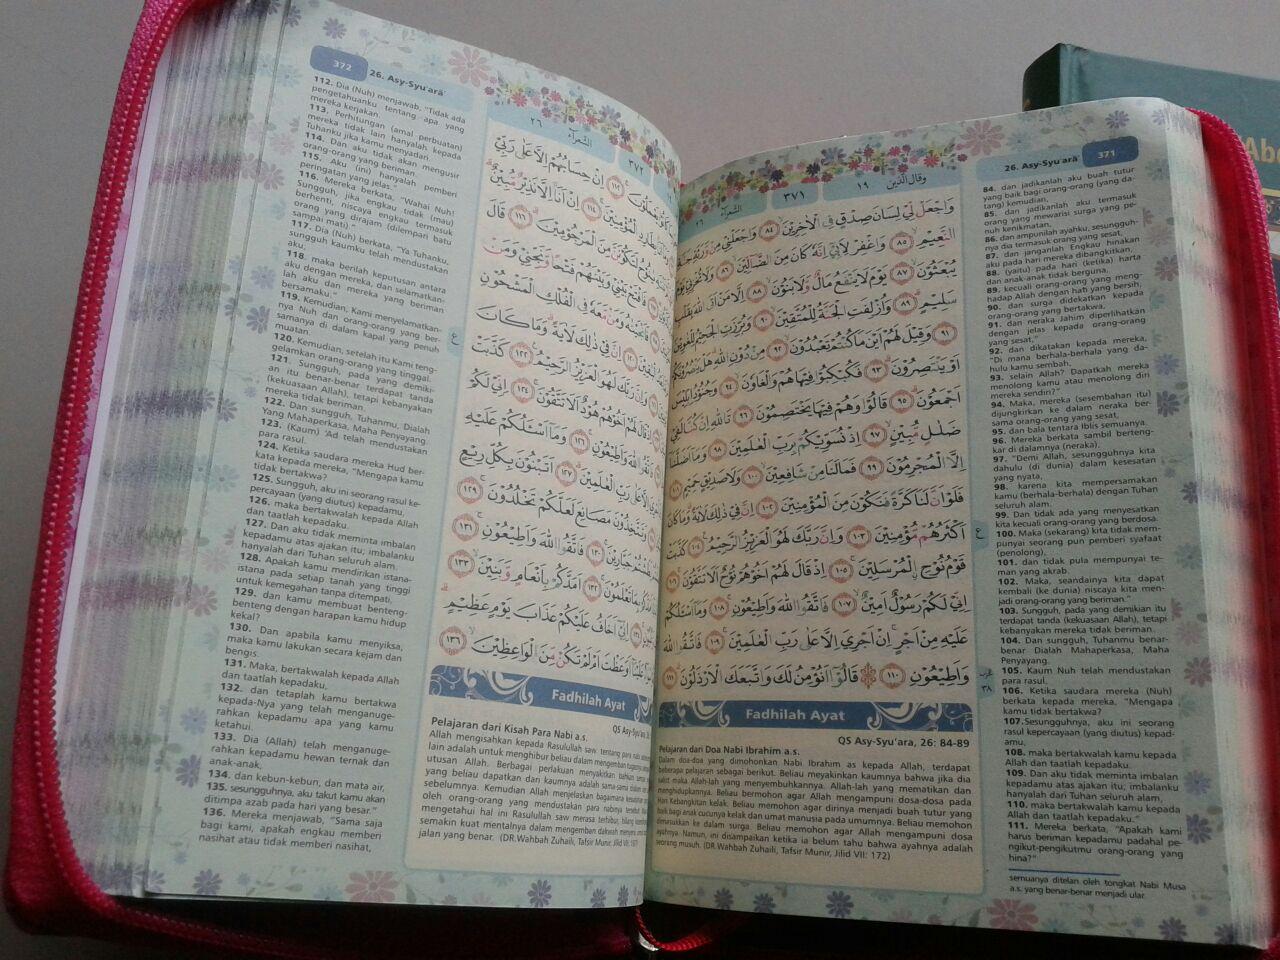 وقال الذين ١٩
٣٧١
الشعرآء ٢٦
وَاجْعَلْ لِّيْ لِسَانَ صِدْقٍ فِى الْاٰخِرِيْنَ ۙ ٨٤ وَاجْعَلْنِيْ مِنْ وَّرَثَةِ جَنَّةِ
النَّعِيْمِ ۙ ٨٥ وَاغْفِرْ لِاَبِيْٓ اِنَّهٗ كَانَ مِنَ الضَّاۤلِّيْنَ ۙ ٨٦ وَلَا تُخْزِنِيْ يَوْمَ
يُبْعَثُوْنَ ۙ ٨٧ يَوْمَ لَا يَنْفَعُ مَالٌ وَّلَا بَنُوْنَ ۙ ٨٨ اِلَّا مَنْ اَتَى اللّٰهَ بِقَلْبٍ
سَلِيْمٍ ۗ ٨٩ وَاُزْلِفَتِ الْجَنَّةُ لِلْمُتَّقِيْنَ ۙ ٩٠ وَبُرِّزَتِ الْجَحِيْمُ لِلْغٰوِيْنَ ۙ
٩١ وَقِيْلَ لَهُمْ اَيْنَ مَا كُنْتُمْ تَعْبُدُوْنَ ۙ ٩٢ مِنْ دُوْنِ اللّٰهِ ۗهَلْ يَنْصُرُوْنَكُمْ
اَوْ يَنْتَصِرُوْنَ ۗ ٩٣ فَكُبْكِبُوْا فِيْهَا هُمْ وَالْغَاوٗنَ ۙ ٩٤ وَجُنُوْدُ اِبْلِيْسَ
اَجْمَعُوْنَ ۗ ٩٥ قَالُوْا وَهُمْ فِيْهَا يَخْتَصِمُوْنَ ٩٦ تَاللّٰهِ اِنْ كُنَّا لَفِيْ
ضَلٰلٍ مُّبِيْنٍ ۙ ٩٧ اِذْ نُسَوِّيْكُمْ بِرَبِّ الْعٰلَمِيْنَ ٩٨ وَمَآ اَضَلَّنَآ
اِلَّا الْمُجْرِمُوْنَ ٩٩ فَمَا لَنَا مِنْ شَافِعِيْنَ ۙ ١٠٠ وَلَا صَدِيْقٍ حَمِيْمٍ ١٠١
فَلَوْ اَنَّ لَنَا كَرَّةً فَنَكُوْنَ مِنَ الْمُؤْمِنِيْنَ ١٠٢ اِنَّ فِيْ ذٰلِكَ لَاٰيَةً ۗوَمَا كَانَ
اَكْثَرُهُمْ مُّؤْمِنِيْنَ ١٠٣ وَاِنَّ رَبَّكَ لَهُوَ الْعَزِيْزُ الرَّحِيْمُ ١٠٤ كَذَّبَتْ
قَوْمُ نُوْحِ ِۨالْمُرْسَلِيْنَ ۚ ١٠٥ اِذْ قَالَ لَهُمْ اَخُوْهُمْ نُوْحٌ اَلَا تَتَّقُوْنَ ۚ ١٠٦
اِنِّيْ لَكُمْ رَسُوْلٌ اَمِيْنٌ ۙ ١٠٧ فَاتَّقُوا اللّٰهَ وَاَطِيْعُوْنِ ۚ ١٠٨ وَمَآ اَسْـَٔلُكُمْ
عَلَيْهِ مِنْ اَجْرٍۚ اِنْ اَجْرِيَ اِلَّا عَلٰى رَبِّ الْعٰلَمِيْنَ ۚ ١٠٩ فَاتَّقُوا اللّٰهَ
وَاَطِيْعُوْنِ ۗ ١١٠ قَالُوْٓا اَنُؤْمِنُ لَكَ وَاتَّبَعَكَ الْاَرْذَلُوْنَ ۗ ١١١
Fadhilah Ayat
QS Asy-Syu'ara, 26: 84-89
Pelajaran dari Doa Nabi Ibrahim a.s.
Dalam doa-doa yang dimohonkan Nabi Ibrahim as kepada Allah, terdapat
beberapa pelajaran sebagai berikut. Beliau meyakinkan kaumnya bahwa jika dia
sakit maka Allah-lah yang menyembuhkannya. Allah-lah yang mematikan dan
menghidupkannya. Beliau bermohon agar Allah mengampuni dosa-dosa pada
Hari Kebangkitan kelak. Beliau memohon agar dirinya menjadi buah tutur yang
baik bagi anak cucunya kelak dan umat manusia pada umumnya. Beliau memohon
dimasukkan ke dalam surga. Beliau memohon agar Allah mengampuni dosa
ayahnya. Namun, ini disampaikan ketika ia belum tahu bahwa ayahnya adalah
seorang musuh. (DR.Wahbah Zuhaili, Tafsir Munir, Jilid VII: 172)
26. Asy-Syu'arā'
371
84. dan jadikanlah aku buah tutur
yang baik bagi orang-orang (yang da-
tang) kemudian,
85. dan jadikanlah aku termasuk
orang yang mewarisi surga yang pe-
nuh kenikmatan,
86. dan ampunilah ayahku, sesungguh-
nya dia termasuk orang yang sesat,
87. dan janganlah Engkau hinakan
aku pada hari mereka dibangkitkan,
88. (yaitu) pada hari (ketika) harta
dan anak-anak tidak berguna,
89. kecuali orang-orang yang meng-
hadap Allah dengan hati yang bersih,
90. dan surga didekatkan kepada
orang-orang yang bertakwa,
91. dan neraka Jahim diperlihatkan
dengan jelas kepada orang-orang
yang sesat,"
92. dan dikatakan kepada mereka,
"Di mana berhala-berhala yang da-
hulu kamu sembah,
93. selain Allah? Dapatkah mereka
menolong kamu atau menolong diri
mereka sendiri?"
94. Maka, mereka (sesembahan itu)
dijungkirkan ke dalam neraka ber-
sama orang-orang yang sesat,
95. dan bala tentara Iblis semuanya.
96. Mereka berkata sambil berteng-
kar di dalamnya (neraka).
97. "Demi Allah, sesungguhnya kita
dahulu (di dunia) dalam kesesatan
yang nyata,
98. karena kita mempersamakan
kamu (berhala-berhala) dengan Tuhan
seluruh alam.
99. Dan tidak ada yang menyesatkan
kita kecuali orang-orang yang berdosa.
100. Maka (sekarang) kita tidak mem-
punyai seorang pun pemberi syafaat
(penolong),
101. dan tidak pula mempunyai te-
man yang akrab.
102. Maka, seandainya kita dapat
kembali (ke dunia) niscaya kita men-
jadi orang-orang yang beriman."
103. Sungguh, pada yang demikian itu
terdapat tanda (kekuasaan Allah), tetapi
kebanyakan mereka tidak beriman.
104. Dan sungguh, Tuhanmu benar-
benar Dialah Mahaperkasa, Maha
Penyayang.
105. Kaum Nuh telah mendustakan
para rasul.
106. Ketika saudara mereka (Nuh)
berkata kepada mereka, "Mengapa
kamu tidak bertakwa?
107.Sesungguhnya, aku ini seorang
rasul kepercayaan (yang diutus) kepad-
amu,
108. maka bertakwalah kamu kepada
Allah dan taatlah kepadaku.
109. Dan aku tidak meminta imbalan
kepadamu atas ajakan itu; imbalanku
hanyalah dari Tuhan seluruh alam,
110. maka bertakwalah kamu kepada
Allah dan taatlah kepadaku."
111. Mereka berkata, "Apakah kami
harus beriman kepadamu padahal pe-
ngikut-pengikutmu orang-orang yang
hina?"
semuanya ditelan oleh tongkat Nabi Musa
a.s. yang benar-benar menjadi ular.
372
26. Asy-Syu'arā'
112. Dia (Nuh) menjawab, "Tidak ada
pengetahuanku tentang apa yang
mereka kerjakan.
113. Perhitungan (amal perbuatan)
mereka tidak lain hanyalah kepada
Tuhanku jika kamu menyadari.
114. Dan aku tidak akan mengusir
orang-orang yang beriman.
115. Aku (ini) hanyalah pemberi
peringatan yang jelas."
116. Mereka berkata, "Wahai Nuh!
Sungguh, jika engkau tidak (mau)
berhenti, niscaya engkau termasuk
orang yang dirajam (dilempari batu
sampai mati)."
117. Dia (Nuh) berkata, "Ya Tuhanku,
sungguh kaumku telah mendustakan
aku,
118. maka berilah keputusan antara
aku dengan mereka, dan selamatkan-
lah aku dan mereka yang beriman
bersamaku."
119. Kemudian, Kami menyelamatkan-
nya Nuh dan orang-orang yang ber-
samanya di dalam kapal yang penuh
muatan.
120. Kemudian, setelah itu Kami teng-
gelamkan orang-orang yang tinggal.
121. Sungguh, pada yang demiki-
an itu benar-benar terdapat tanda
(kekuasaan Allah), tetapi kebanyakan
mereka tidak beriman.
122. Dan sungguh, Tuhanmu, Dialah
Yang Mahaperkasa, Maha Penyayang.
123. (Kaum) 'Ad telah mendustakan
para rasul.
124. Ketika saudara mereka Hud ber-
kata kepada mereka, "Mengapa kamu
tidak bertakwa?
125. Sungguh, aku ini seorang rasul ke-
percayaan (yang diutus) kepadamu,
126. maka bertakwalah kepada Allah
dan taatlah kepadaku.
127. Dan aku tidak meminta imbalan
kepadamu atas ajakan itu; imbalanku
hanyalah dari Tuhan seluruh alam.
128. Apakah kamu mendirikan istana-
istana pada setiap tanah yang tinggi
untuk kemegahan tanpa ditempati,
129. dan kamu membuat benteng-
benteng dengan harapan kamu hidup
kekal?
130. Dan apabila kamu menyiksa,
maka kamu lakukan secara kejam dan
bengis.
131. Maka, bertakwalah kepada Allah
dan taatlah kepadaku,
132. dan tetaplah kamu bertakwa
kepada-Nya yang telah menganuge-
rahkan kepadamu apa yang kamu
ketahui.
133. Dia (Allah) telah menganuge-
rahkan kepadamu hewan ternak dan
anak-anak,
134. dan kebun-kebun, dan mata air,
135. sesungguhnya, aku takut kamu akan
ditimpa azab pada hari yang besar."
136. Mereka menjawab, "Sama saja
bagi kami, apakah engkau memberi
nasihat atau tidak memberi nasihat,
٣٧٢
الشعرآء
٢٦
١١٢ اِنْ حِسَابُهُمْ اِلَّا عَلٰى رَبِّيْ
الْمُؤْمِنِيْنَ ۚ ١١٤ اِنْ اَنَا۠ اِلَّا نَذِيْرٌ مُّبِيْنٌ ۗ
لَتَكُوْنَنَّ مِنَ الْمَرْجُوْمِيْنَ ۗ ١١٦ قَالَ
فَافْتَحْ بَيْنِيْ وَبَيْنَهُمْ فَتْحًا وَّنَجِّنِيْ وَمَنْ
فَاَنْجَيْنٰهُ وَمَنْ مَّعَهٗ فِى الْفُلْكِ الْمَشْحُوْنِ
اِنَّ فِيْ ذٰلِكَ لَاٰيَةً ۗوَمَا كَانَ
وَاِنَّ رَبَّكَ لَهُوَ الْعَزِيْزُ الرَّحِيْمُ ١٢٢ كَذَّبَتْ
قَالَ لَهُمْ اَخُوْهُمْ هُوْدٌ اَلَا تَتَّقُوْنَ ۚ ١٢٤ اِنِّيْ لَكُمْ
فَاتَّقُوا اللّٰهَ وَاَطِيْعُوْنِ ۚ ١٢٦ وَمَآ اَسْـَٔلُكُمْ عَلَيْهِ
اِلَّا عَلٰى رَبِّ الْعٰلَمِيْنَ ۗ ١٢٧ اَتَبْنُوْنَ بِكُلِّ رِيْعٍ
وَتَتَّخِذُوْنَ مَصَانِعَ لَعَلَّكُمْ تَخْلُدُوْنَ ۚ ١٢٩
جَبَّارِيْنَ ۚ ١٣٠ فَاتَّقُوا اللّٰهَ وَاَطِيْعُوْنِ ۚ ١٣١
بِمَا تَعْلَمُوْنَ ۚ ١٣٢ اَمَدَّكُمْ بِاَنْعَامٍ وَّبَنِيْنَ ۙ ١٣٣
اِنِّيْٓ اَخَافُ عَلَيْكُمْ عَذَابَ يَوْمٍ عَظِيْمٍ ۗ
عَلَيْنَآ اَوَعَظْتَ اَمْ لَمْ تَكُنْ مِّنَ الْوَاعِظِيْنَ ۙ ١٣٦
Fadhilah Ayat
QS Asy-Syu'ara, 26:
Pelajaran dari Kisah Para Nabi a.s.
Allah mengisahkan kepada Rasulullah saw. tentang para nabi
lain adalah untuk menghibur beliau dalam mengemban tugasnya
utusan Allah. Berbagai perlakuan menyakitkan bahkan
yang beliau dapatkan dari kaumnya adalah sama-sama
sebelumnya. Kemudian Allah menjelaskan bagaimana kesudahan
oleh orang-orang yang mendustakan para nabinya tersebut.
mengetahui hal ini Rasulullah saw merasa terhibur,
semakin kuat mentalnya dalam mengemban dakwah
jalan yang benar. (DR.Wahbah Zuhaili, Tafsir Munir, Jilid VII: